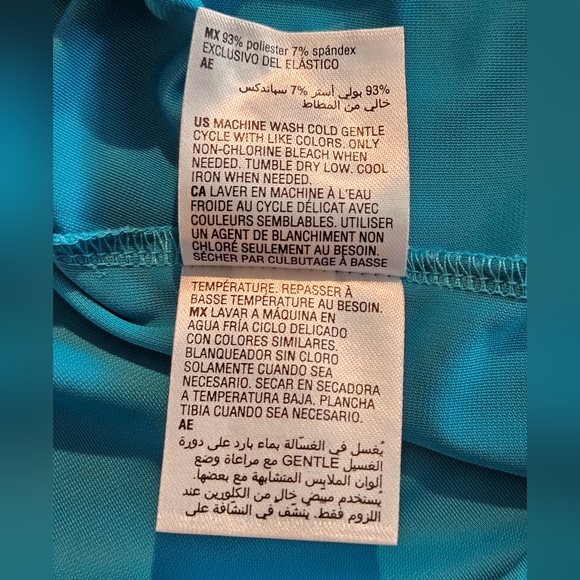 MX 93% poliester 7% spándex
EXCLUSIVO DEL ELÁSTICO
AE
93% بولي أستر 7% سباندكس
خالي من المطاط
US MACHINE WASH COLD GENTLE
CYCLE WITH LIKE COLORS. ONLY
NON-CHLORINE BLEACH WHEN
NEEDED. TUMBLE DRY LOW. COOL
IRON WHEN NEEDED.
CA LAVER EN MACHINE À L'EAU
FROIDE AU CYCLE DÉLICAT AVEC
COULEURS SEMBLABLES. UTILISER
UN AGENT DE BLANCHIMENT NON
CHLORÉ SEULEMENT AU BESOIN.
SÉCHER PAR CULBUTAGE À BASSE
TEMPÉRATURE. REPASSER À
BASSE TEMPÉRATURE AU BESOIN.
MX LAVAR A MÁQUINA EN
AGUA FRÍA CICLO DELICADO
CON COLORES SIMILARES.
BLANQUEADOR SIN CLORO
SOLAMENTE CUANDO SEA
NECESARIO. SECAR EN SECADORA
A TEMPERATURA BAJA. PLANCHA
TIBIA CUANDO SEA NECESARIO.
AE
يُغسل في الغسّالة بماء بارد على دورة
الغسيل GENTLE مع مراعاة وضع
ألوان الملابس المتشابهة مع بعضها.
يُستخدم مبيّض خالٍ من الكلورين عند
اللزوم فقط. ينشّف في النشّافة على